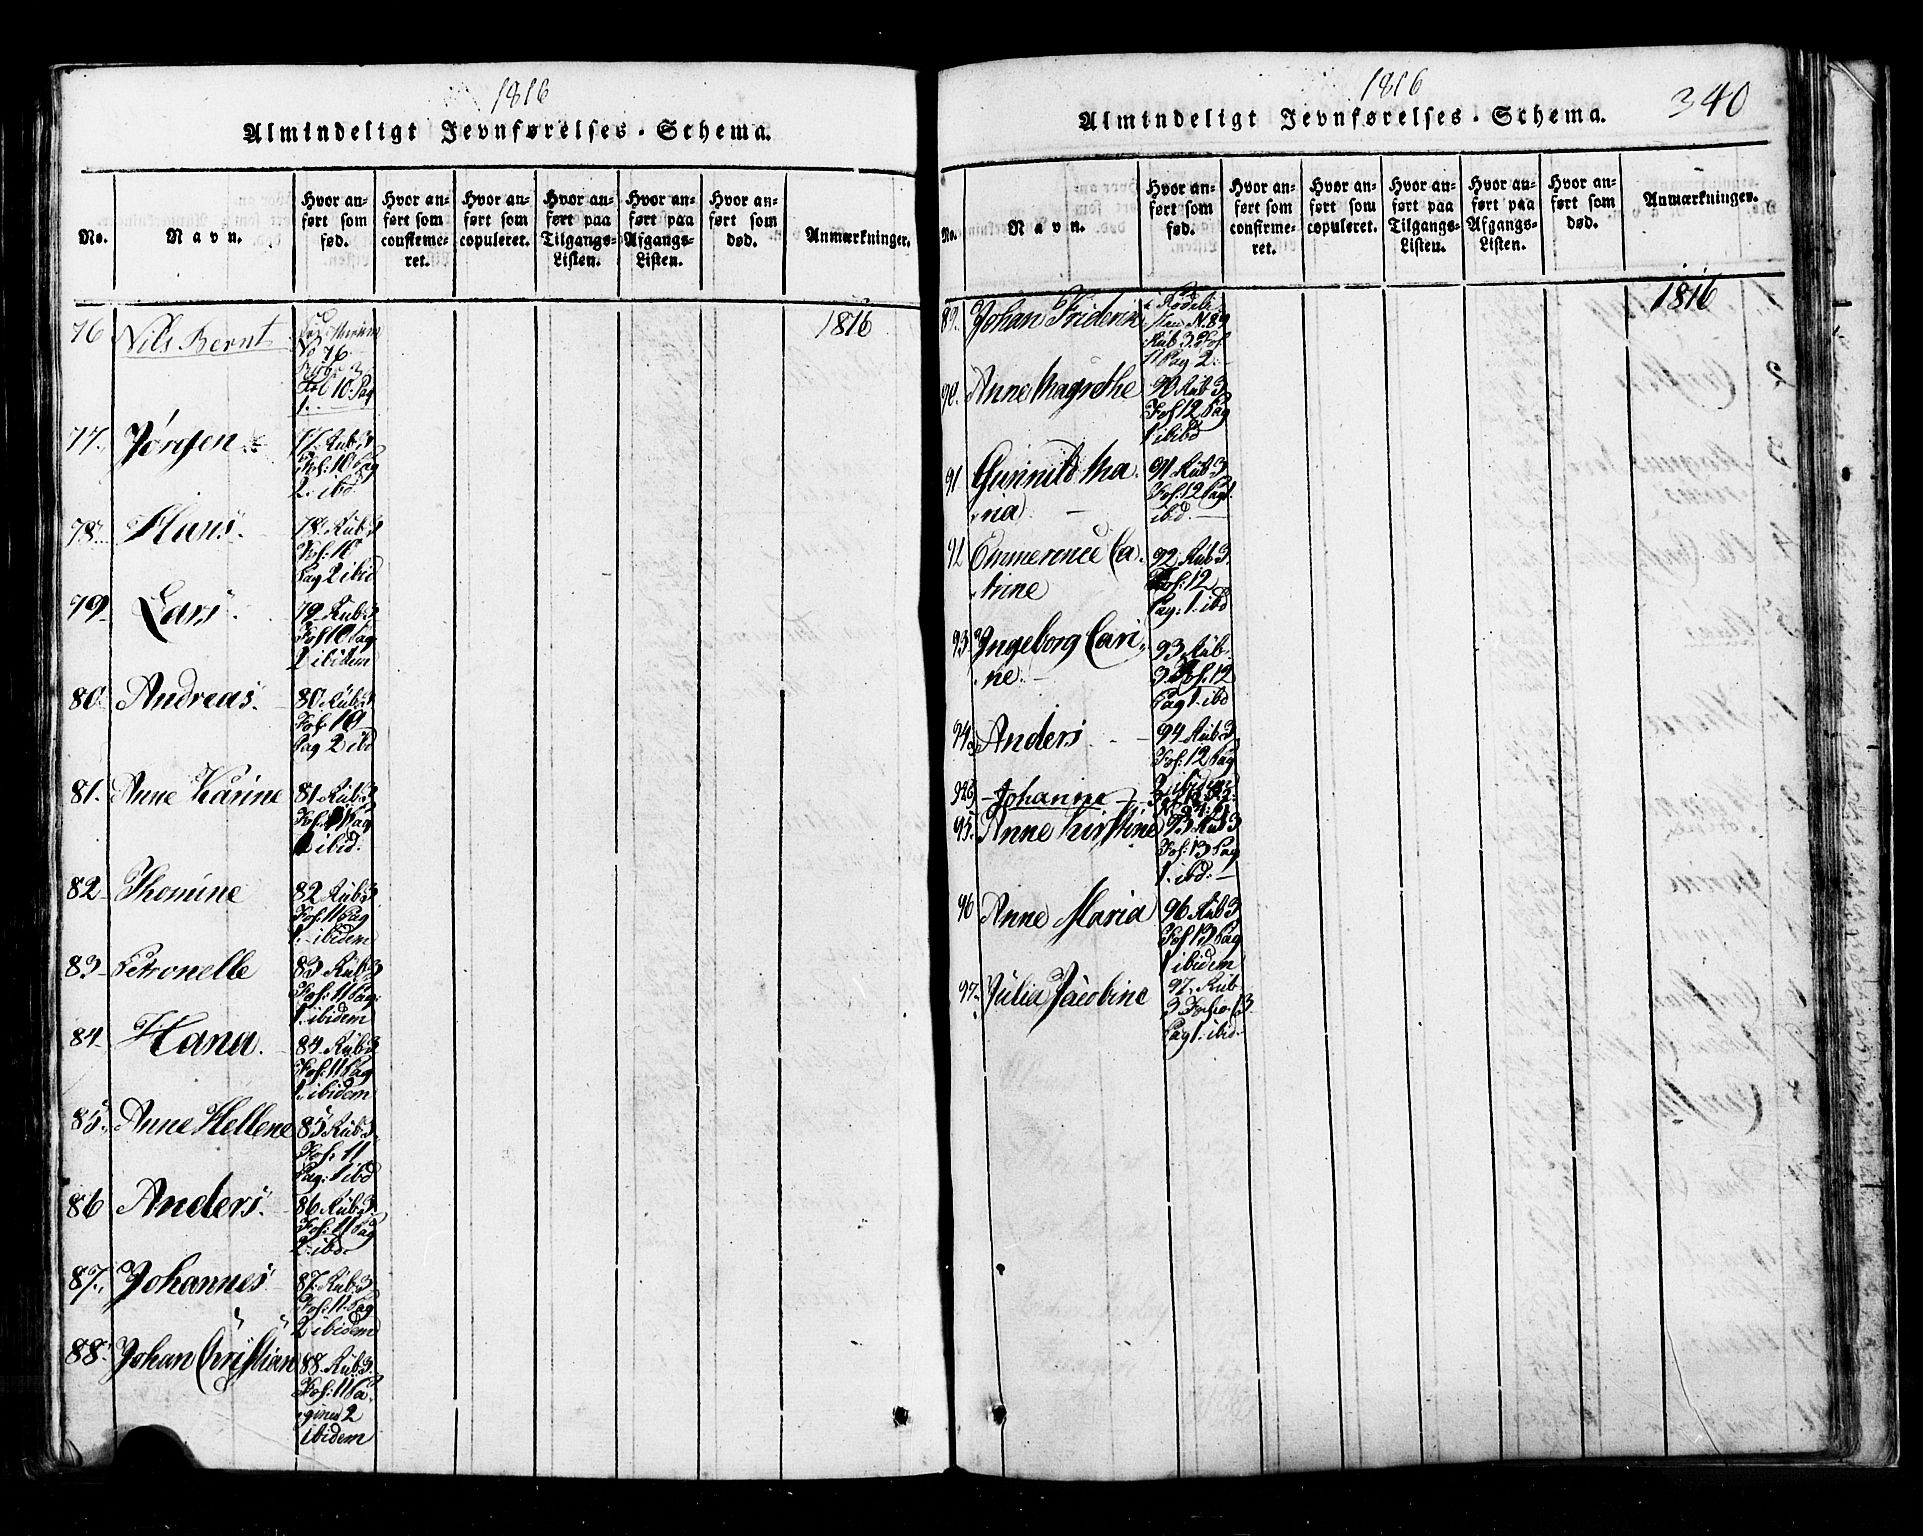 1816
Almindeligt Jevnførelses-Schema.
No.
Navn.
Hvor an-
ført som
fød.
Hvor an-
ført som
confirme-
ret.
Hvor an-
ført som
copuleret.
Hvor an-
ført paa
Tilgangs-
Listen.
Hvor an-
ført paa
Afgangs-
Listen.
Hvor an-
ført som
død.
Anmærkninger.
1816
76 Nils Bernt
No 76
Fol 10. Pag
1.
77. Jørgen
77. Rub. 3
Fol: 10 Pag
2. ibd.
78. Hans.
78. Rub. 3
Fol: 10
Pag 2 ibid
79 Lars.
79 Rub. 3
Fol 10 Pag
2 ibidem
80. Andreas.
80. Rub. 3
Fol: 10
Pag 2 ibd
81. Anne Karine
81 Rub. 3
Fol. 11 Pag
1 ibid.
82 Thomine
82 Rub. 3
Fol: 11 Pag
1. ibidem
83 Petronelle
83 Rub. 3
Fol: 11 Pag.
1. ibidem
84 Hana.
84 Rub. 3
Fol: 11 Pag
1. ibidem
85. Anne Hellene
85 Rub. 3.
Fol: 11
Pag: 1 ibd
86 Anders.
86 Rub. 3.
Fol: 11 Pag
2 ibd.
87. Johannes
87. Rub. 3
Fol: 11. Pag
2 ibidem
88. Johan Christian
88. Rub. 3.
Fol: 11 Pa-
gina 2
ibidem
1816
340
Almindeligt Jevnførelses-Schema.
No.
Navn.
Hvor an-
ført som
fød.
Hvor an-
ført som
confirme-
ret.
Hvor an-
ført som
copuleret.
Hvor an-
ført paa
Tilgangs-
Listen.
Hvor an-
ført paa
Afgangs-
Listen.
Hvor an-
ført som
død.
Anmærkninger.
1816
89. Johan Friderik
N. 89
Rub 3. Fol.
11 Pag 2.
90. Anne Magrethe
90 Rub 3
Fol 12 Pag
1 ibid
91 Gunnild Ma-
ria
91 Rub 3
Fol: 12 Pag 1.
ibd.
92 Emmerence Ca-
trine
92. Rub 3.
Fol: 12
Pag: 1. ibd
93. Ingeborg Cari-
ne.
93 Rub.
3. Fol. 12
Pag 1. ibd
94 Anders
94 Rub. 3
Fol: 12 Pag
2 ibidem
Johanne
95. Anne Kirstine
95 Rub 3
Fol: 13 Pag
1. ibd.
96 Anne Maria
96 Rub 3
Fol 13 Pag
1 ibidem
97. Julia Jacobine
97. Rub
3 Folio 13
Pag 1. ibid.